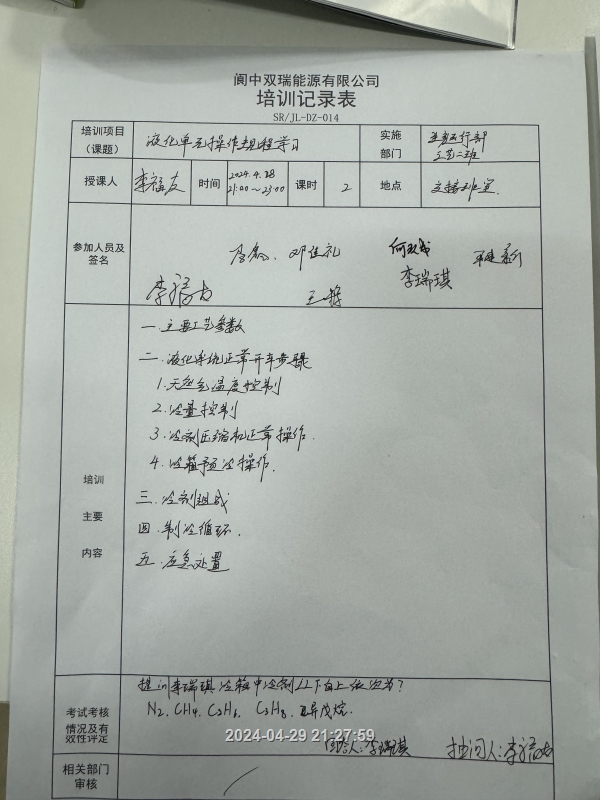 阆中双瑞能源有限公司
培训记录表
SR/JL-DZ-014
培训项目
(课题)
液化单元操作规程学习
实施
部门
工艺二班
授课人
李福友
时间
2024.4.28
21:00~23:00
课时
2
地点
参加人员及
签名
邓佳礼
李瑞琪
李福友
培训
主要
内容
一.主要工艺参数
二.液化系统正常开车步骤
1.天然气温度控制
2.冷量控制
3.冷剂压缩机正常操作.
4.冷箱预冷操作.
三.冷剂组成
四.制冷循环.
五.应急处置
考试考核
情况及有
效性评定
提问李瑞琪冷箱中冷剂从下自上依次为?
N2.CH4.C2H6. C3H8. 异戊烷.
回答人:李瑞琪 抽问人:李福友
2024-04-29 21:27:59
相关部门
审核